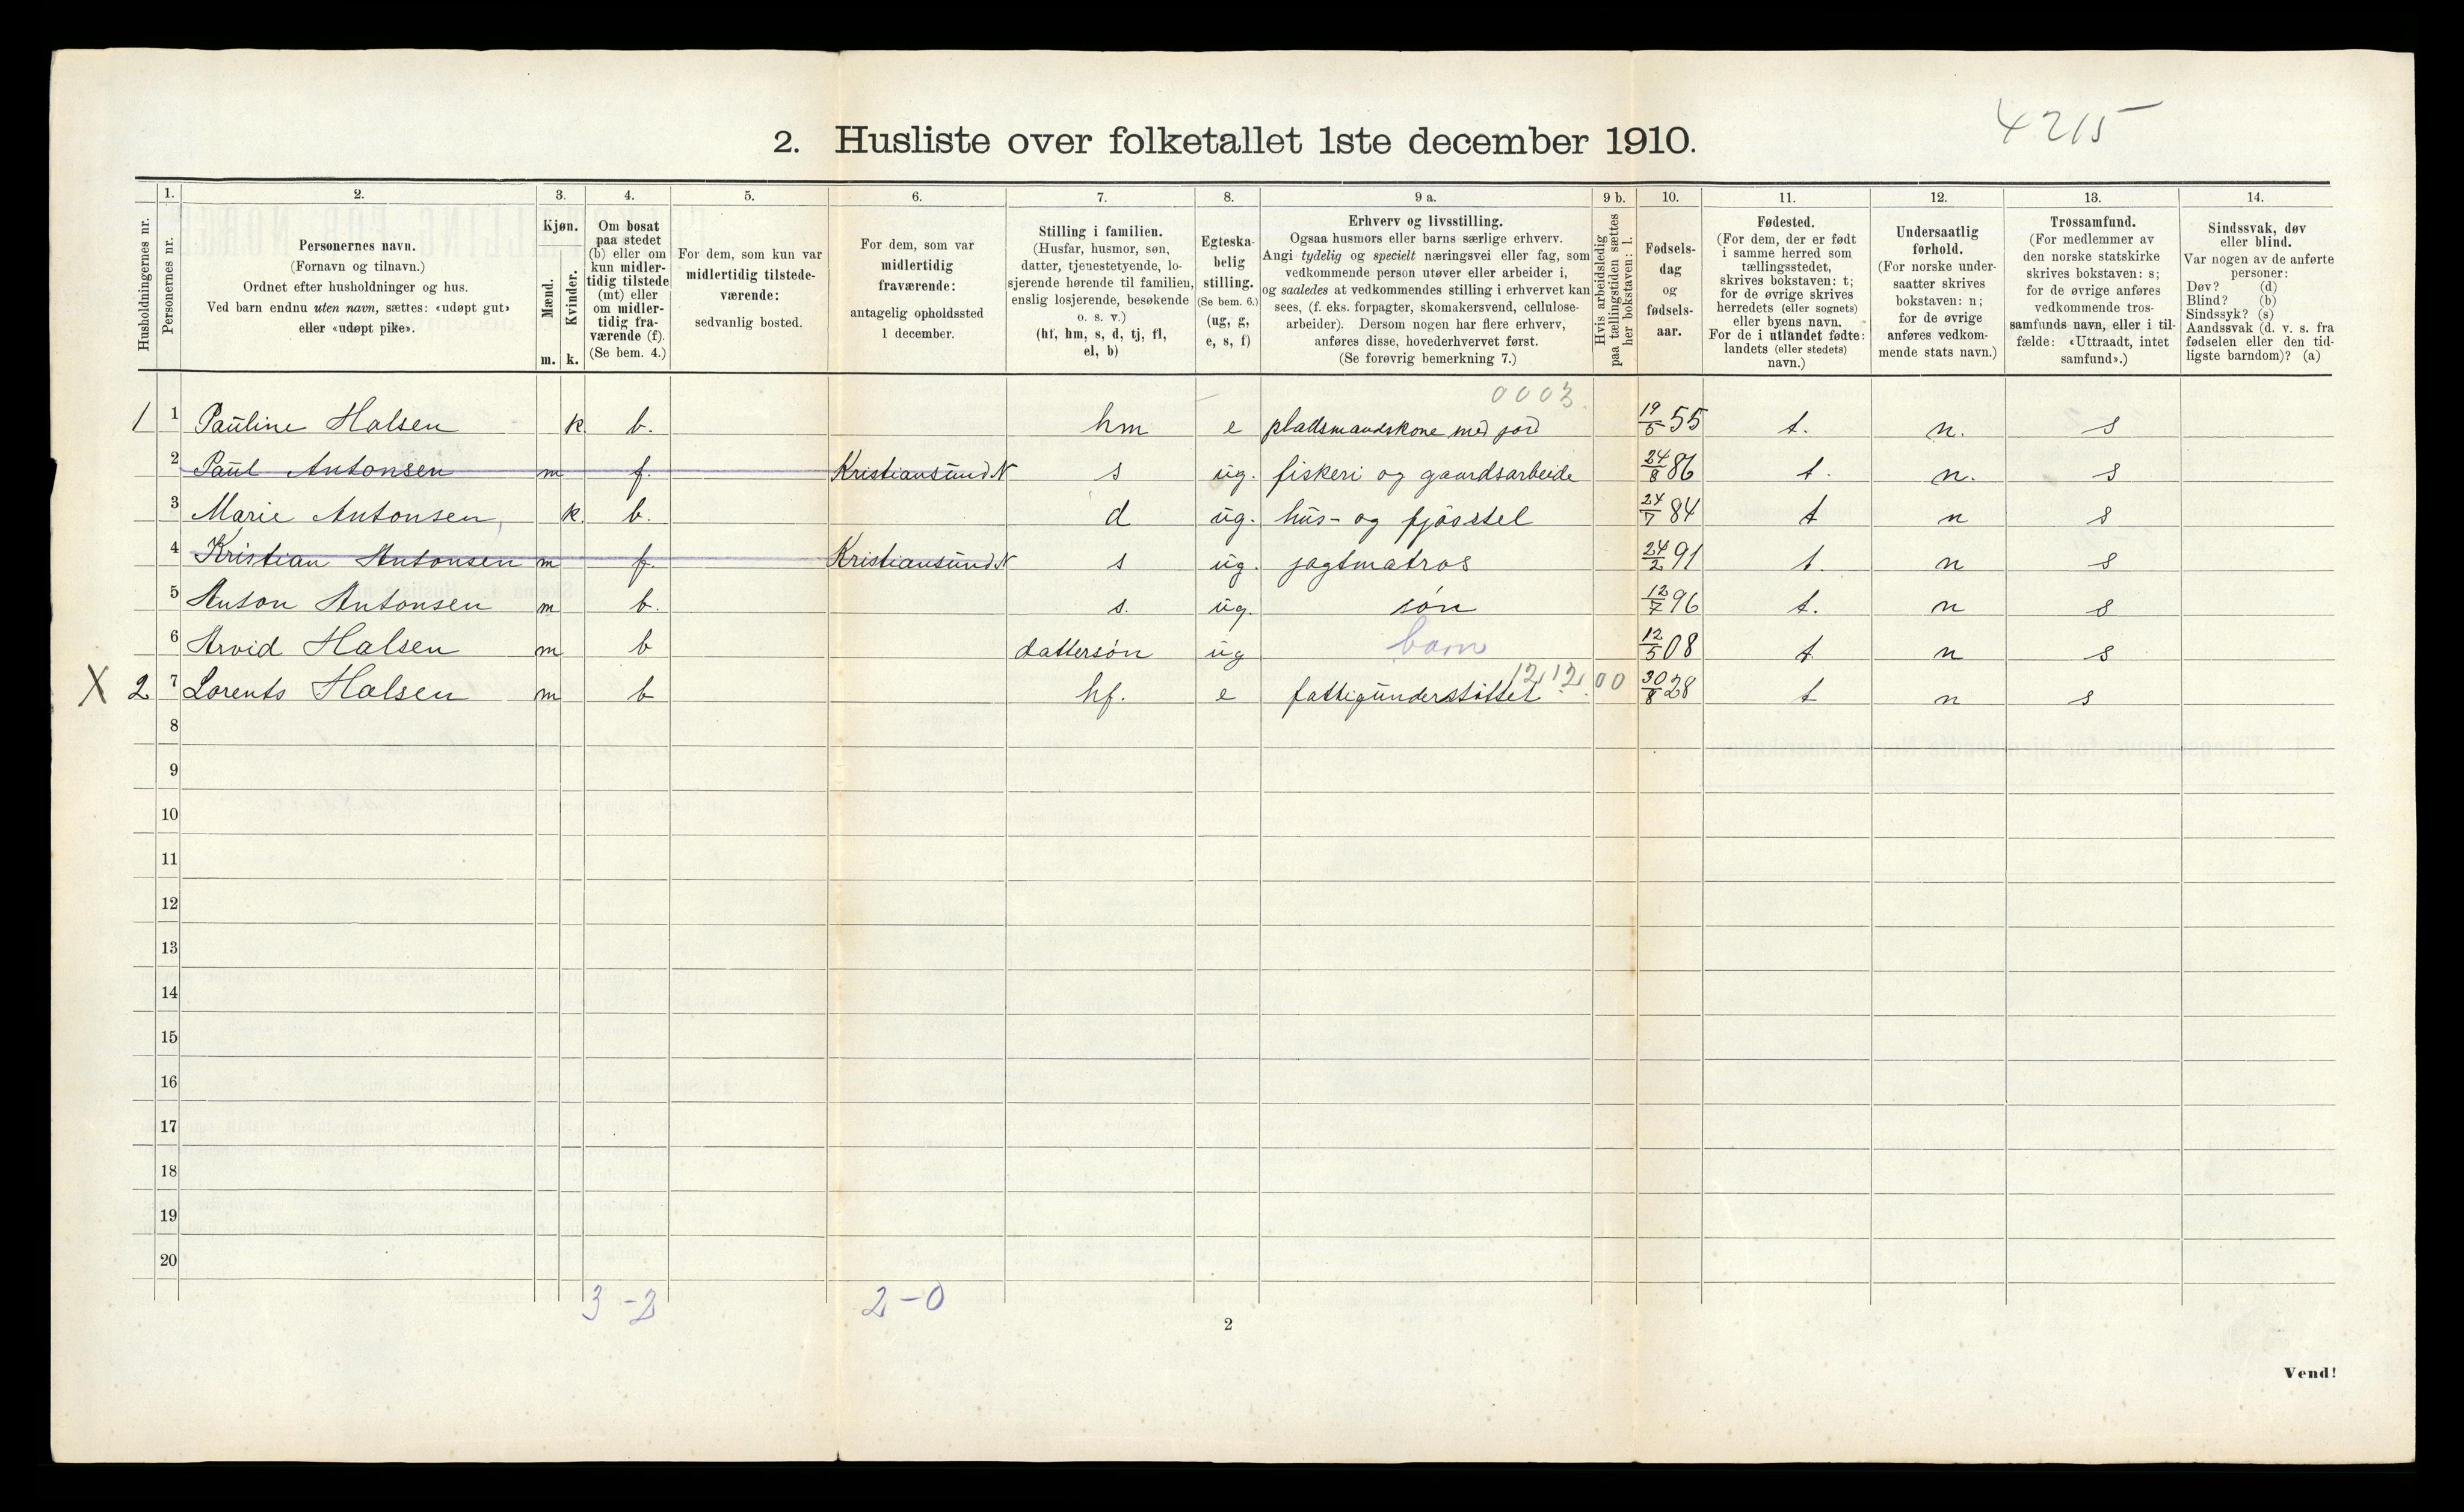 4215
2. Husliste over folketallet 1ste december 1910.
Husholdningernes nr.
1.
Personernes nr.
2.
Personernes navn.
(Fornavn og tilnavn.)
Ordnet efter husholdninger og hus.
Ved barn endnu uten navn, sættes: «udøpt gut»
eller «udøpt pike».
3.
Kjøn.
Mænd.
Kvinder.
m. k.
4.
Om bosat
paa stedet
(b) eller om
kun midler-
tidig tilstede
(mt) eller
om midler-
tidig fra-
værende (f).
(Se bem. 4.)
5.
For dem, som kun var
midlertidig tilstede-
værende:
sedvanlig bosted.
6.
For dem, som var
midlertidig
fraværende:
antagelig opholdssted
1 december.
7.
Stilling i familien.
(Husfar, husmor, søn,
datter, tjenestetyende, lo-
sjerende hørende til familien,
enslig losjerende, besøkende
o. s. v.)
(hf, hm, s, d, tj, fl,
el, b)
8.
Egteska-
belig
stilling.
(Se bem. 6.)
(ug, g,
e, s, f)
9 a.
Erhverv og livsstilling.
Ogsaa husmors eller barns særlige erhverv.
Angi tydelig og specielt næringsvei eller fag, som
vedkommende person utøver eller arbeider i,
og saaledes at vedkommendes stilling i erhvervet kan
sees, (f. eks. forpagter, skomakersvend, cellulose-
arbeider). Dersom nogen har flere erhverv,
anføres disse, hovederhvervet først.
(Se forøvrig bemerkning 7.)
9 b.
Hvis arbeidsledig
paa tællingstiden sættes
her bokstaven: l.
10.
Fødsels-
dag
og
fødsels-
aar.
11.
Fødested.
(For dem, der er født
i samme herred som
tællingsstedet,
skrives bokstaven: t;
for de øvrige skrives
herredets (eller sognets)
eller byens navn.
For de i utlandet fødte:
landets (eller stedets)
navn.)
12.
Undersaatlig
forhold.
(For norske under-
saatter skrives
bokstaven: n;
for de øvrige
anføres vedkom-
mende stats navn.)
13.
Trossamfund.
(For medlemmer av
den norske statskirke
skrives bokstaven: s;
for de øvrige anføres
vedkommende tros-
samfunds navn, eller i til-
fælde: «Uttraadt, intet
samfund».)
14.
Sindssvak, døv
eller blind.
Var nogen av de anførte
personer:
Døv? (d)
Blind? (b)
Sindssyk? (s)
Aandssvak (d. v. s. fra
fødselen eller den tid-
ligste barndom)? (a)
0003.
1 1 Pauline Halsen k. b. hm e pladsmandskone med jord 19/5 55 t. n. s
2 Paul Antonsen m f. Kristiansund N s ug. fiskeri og gaardsarbeide 24/8 86 t. n. s
3 Marie Antonsen, k. b. d ug. hus- og fjøsstel 24/7 84 t n s
4 Kristian Antonsen m f. Kristiansund N s ug. jagtmatros 24/2 91 t. n s
5 Anton Antonsen m b. s. ug. søn 12/7 96 t. n s
6 Arvid Halsen m b dattersøn ug barn 12/5 08 t. n s
12.12.00
X 2 7 Lorents Halsen m b hf. e fattigunderstøttet 30/8 28 t n s
8
9
10
11
12
13
14
15
16
17
18
19
20
3 - 2 2 - 0
2
Vend!